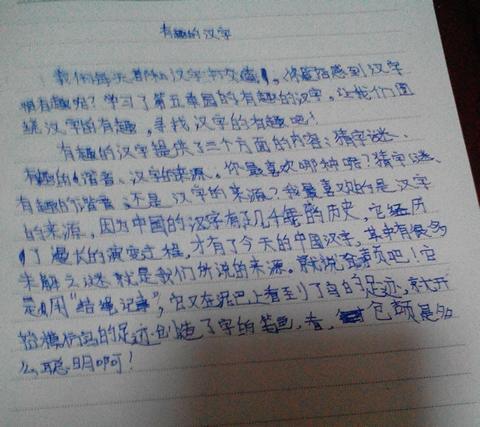 有趣的汉字
我们每天都和汉字打交道,你是否感到汉字
很有趣呢?学习了第五单园的有趣的汉字,让我们围
绕汉字的有趣,寻找汉字的有趣吧!
有趣的汉字提供了三个方面的内容:猜字谜、
有趣的谐音、汉字的来源。你最喜欢哪种呢?猜字谜、
有趣的谐音、还是汉字的来源?我最喜欢的是汉字
的来源,因为中国的汉字有了几千年的历史,它经历
了漫长的演变过程,才有了今天的中国汉字,其中有很多
未解之谜就是我们所说的来源。就说仓颉吧!它
是用"结绳记事",它又在泥巴上看到了鸟的足迹,就开
始模仿鸟的足迹创造了字的笔色,看,仓颉是多
么聪明啊!